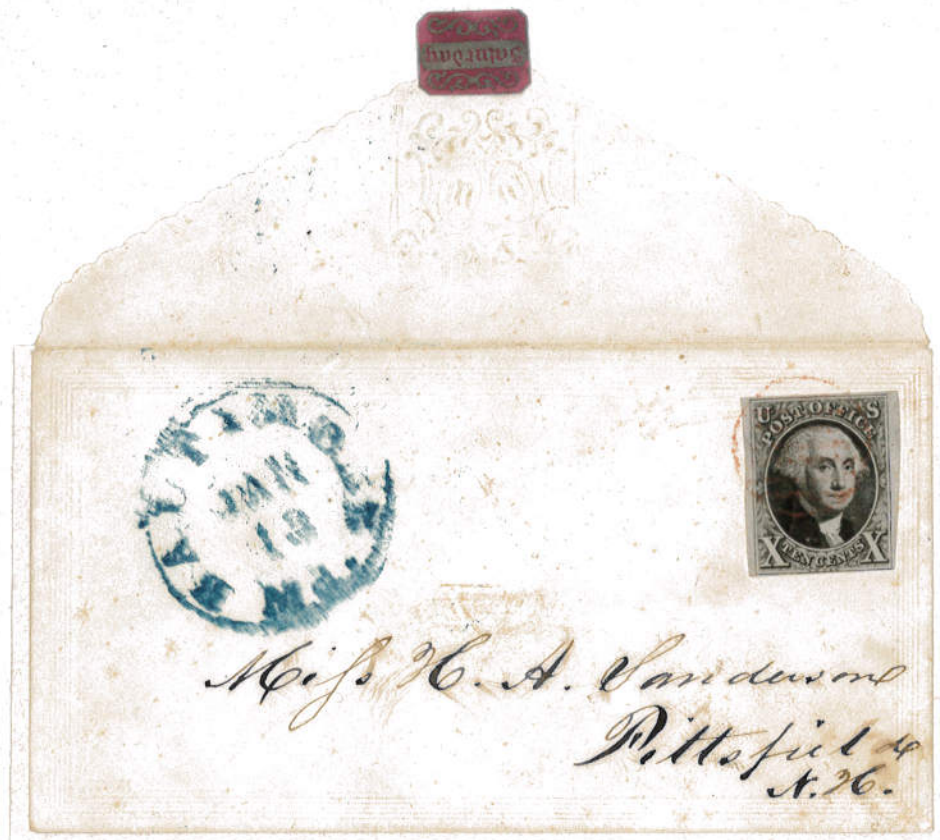 Saturday
BALTIMORE Md.
JAN
13
U S
POST OFFICE
X TEN CENTS X
Miss H. A. Sanderson
Pittsfield
N. H.